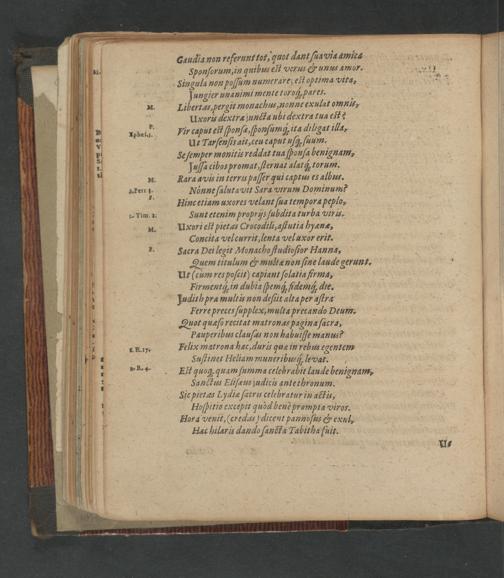 Gaudia non referunt tot, quot dant sua via amica
Sponsorum, in quibus est verus & unus amor.
Singula non possum numerare, est optima vita,
Jungier unanimi mente toroq́, pares.
M. Libertas, pergit monachus, nonne exulat omnis,
Uxoris dextræ juncta ubi dextra tua est?
P. Vir caput est sponsæ, sponsumq́, ita diligat illa,
Xphes. 5. Ut Tarsensis ait, ceu caput usq́, suum.
Se semper monitis reddat tua sponsa benignam,
Jussa cibos promat, sternat alatq́, torum.
M. Rara avis in terris passer qui captus es albus.
2. Petr. 3. Nonne salutavit Sara virum Dominum?
P. Hinc etiam uxores velant sua tempora peplo,
1. Tim. 2. Sunt etenim proprijs subdita turba viris.
M. Uxori est pietas Crocodili, astutia hyænæ,
Concita vel currit, lenta vel uxor erit.
P. Sacra Dei legit Monacho studiosior Hanna,
Quem titulum & multæ non sine laude gerunt.
Ut (cum res poscit) capiant solatia firma,
Firmentq́, in dubia spemq́, fidemq́, die.
Judith præ multis non desijt alta per astra
Ferre preces supplex, multa precando Deum.
Quot quæso recitat matronas pagina sacra,
Pauperibus clausas non habuisse manus?
1. R. 17. Felix matrona hæc, duris quæ in rebus egentem
Sustinet Heliam muneribusq́, levat.
2. R. 4. Est quoq́, quam summa celebrabit laude benignam,
Sanctus Elisæus judicis ante thronum.
Sic pietas Lydiæ satis celebratur in actis,
Hospitio excepit quòd benè prompta viros.
Hora venit, (credas) dicent pannosus & exul,
Hæc hilaris dando sancta Tabitha fuit.
Us